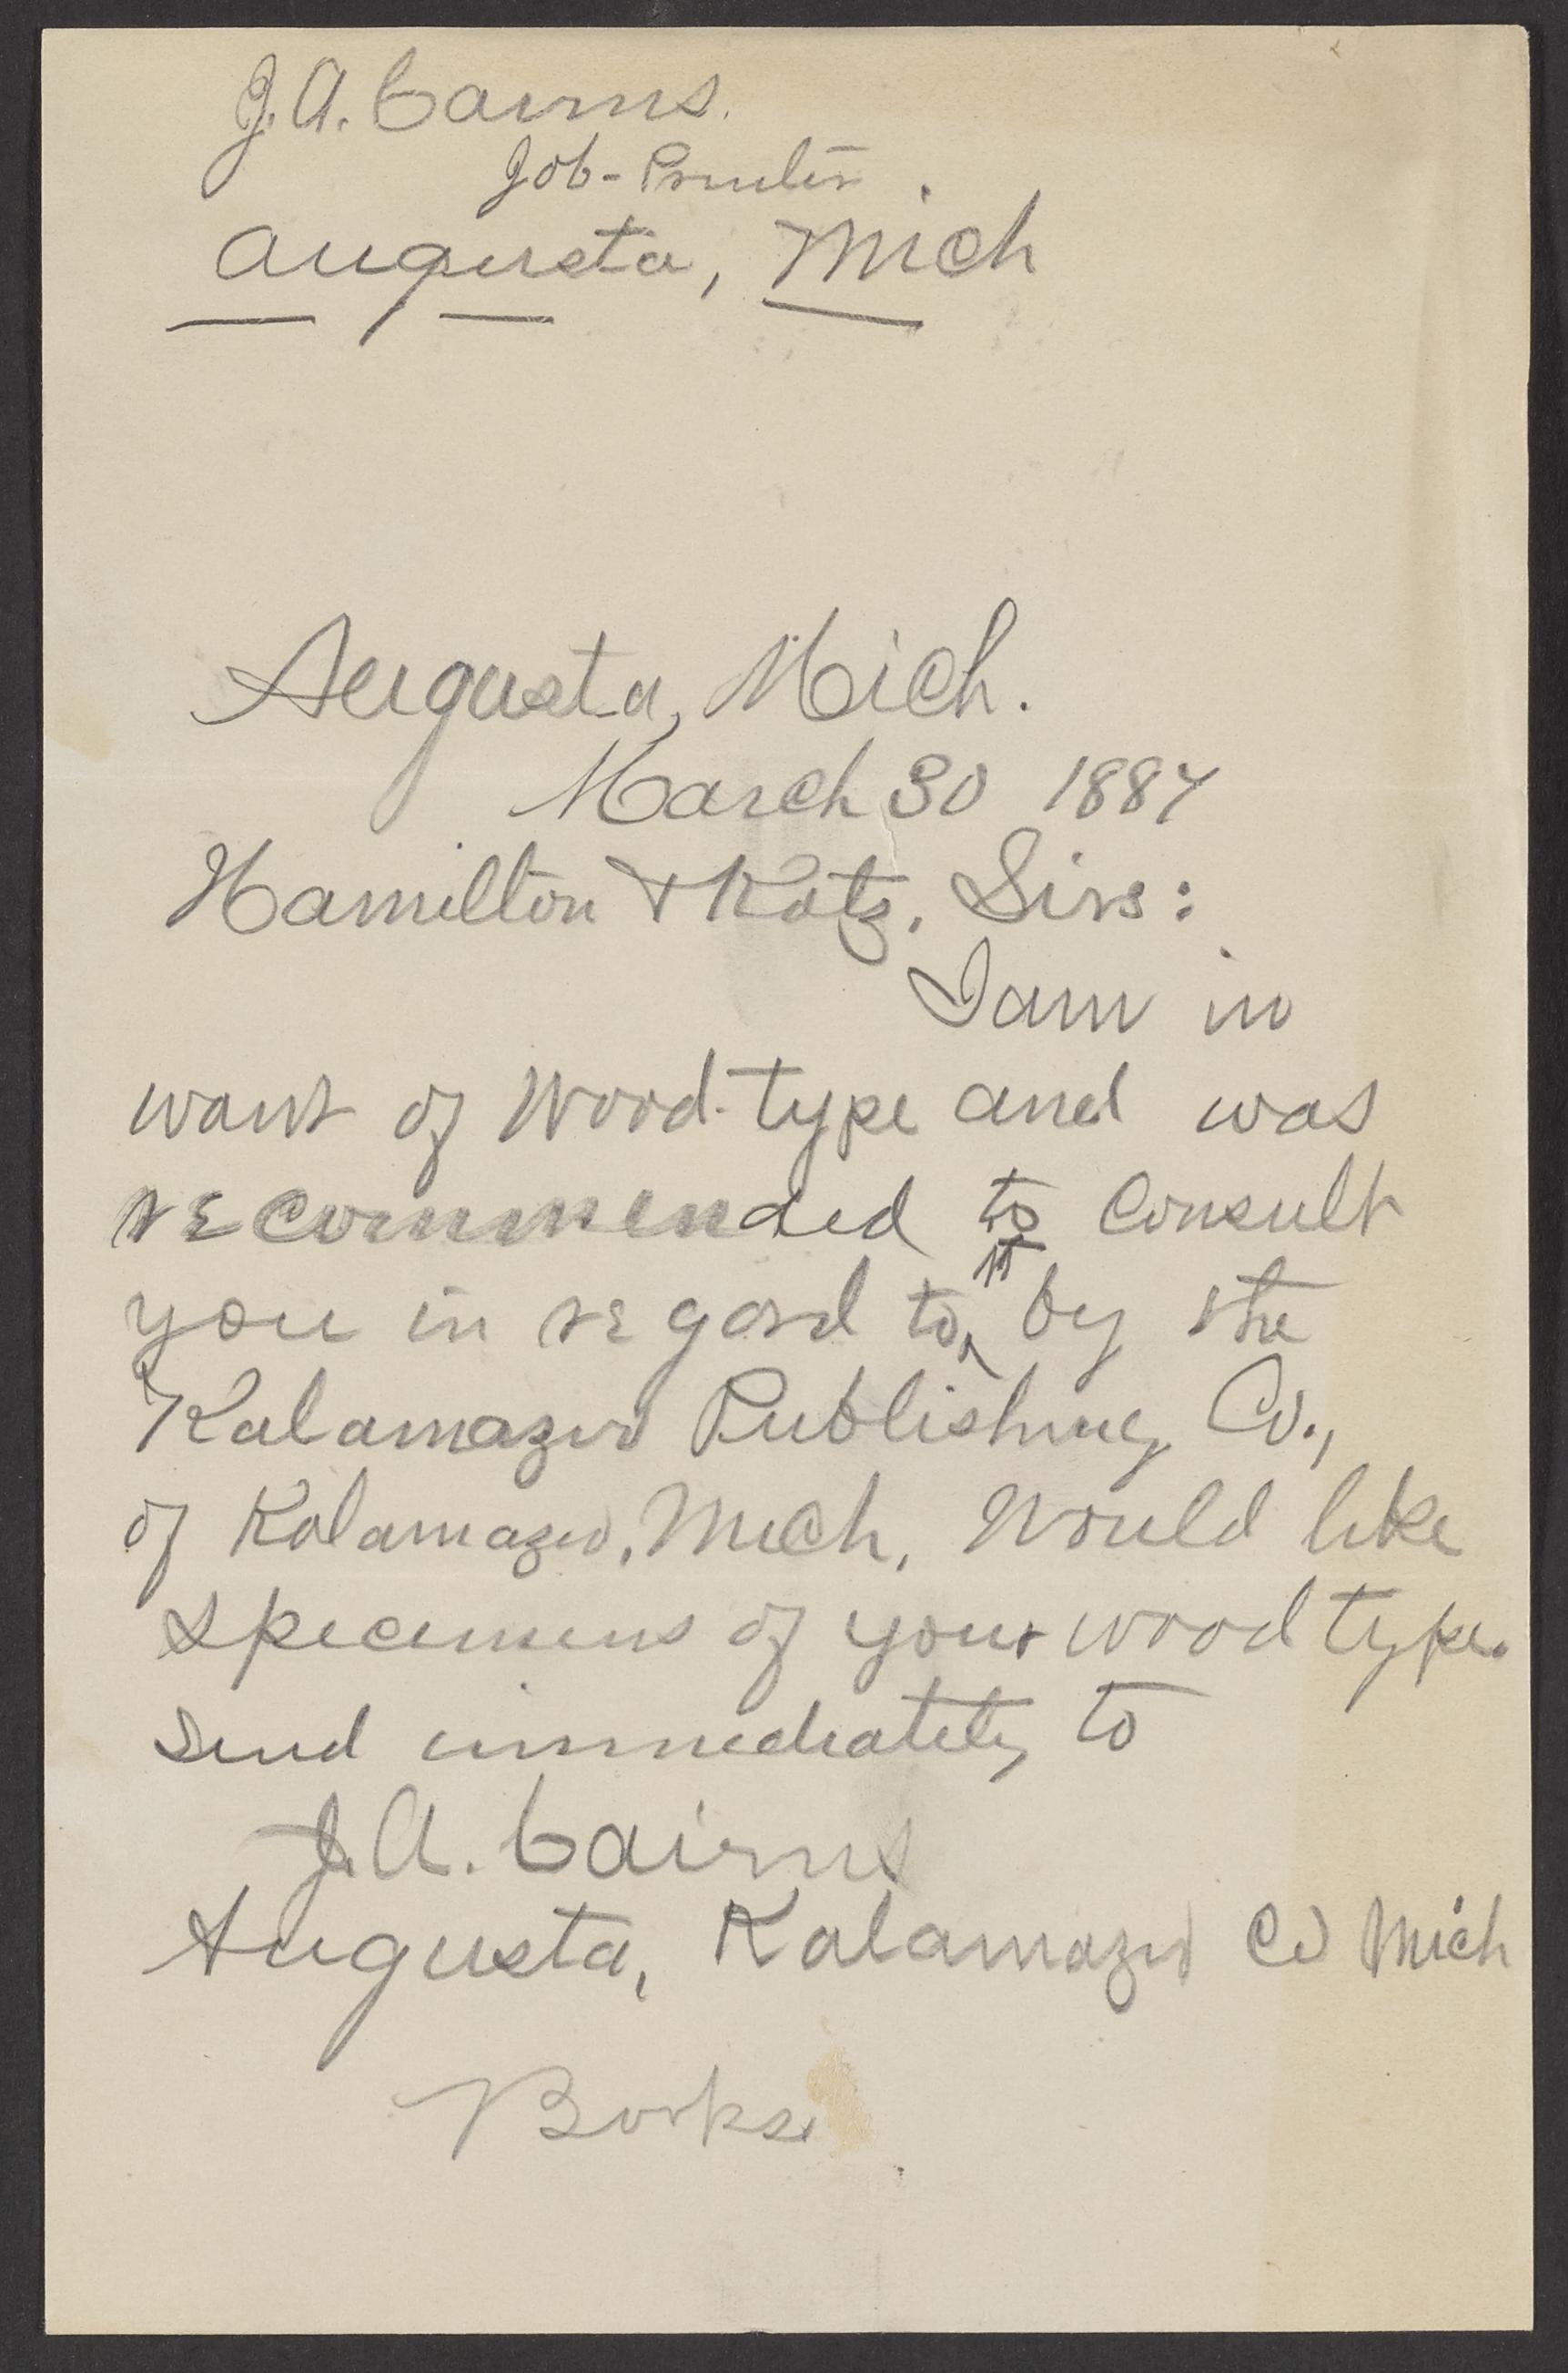 J. A. Cairns.
Job-Printer.
Augusta, Mich
Augusta, Mich.
March 30 1884
Hamilton & Katz, Sirs:
I am in
want of Wood-type and was
recommended to consult
you in regard to it by the
Kalamazoo Publishing Co.,
of Kalamazoo, Mich, Would like
specimens of your wood type.
Send immediately to
J. A. Cairns
Augusta, Kalamazoo Co Mich
Books